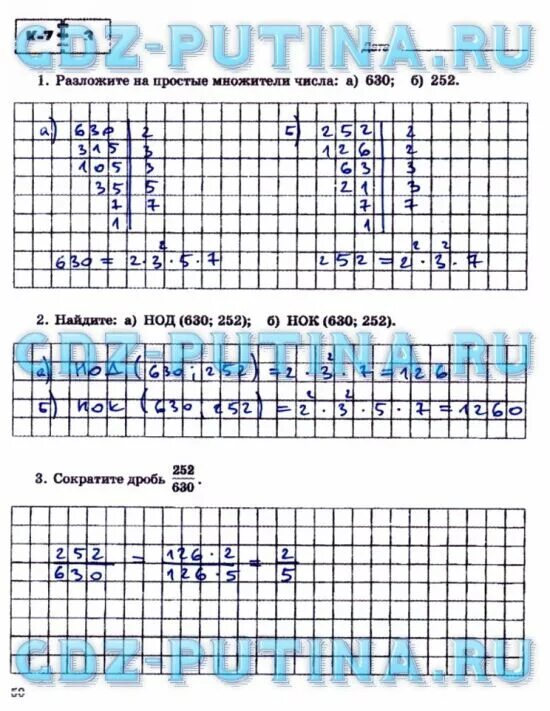 К-7 3
Дата
GDZ-PUTINA.RU
1. Разложите на простые множители числа: а) 630; б) 252.
а) 630 | 2
315 | 3
105 | 3
35 | 5
7 | 7
1
б) 252 | 2
126 | 2
63 | 3
21 | 3
7 | 7
1
630 = 2·3²·5·7
252 = 2²·3²·7
GDZ-PUTINA.RU
2. Найдите: а) НОД (630; 252); б) НОК (630; 252).
GDZ-PUTINA.RU
а) НОД (630; 252) = 2·3²·7 = 126
б) НОК (630; 252) = 2²·3²·5·7 = 1260
3. Сократите дробь 252/630.
252/630 = 126·2/126·5 = 2/5
GDZ-PUTINA.RU
50